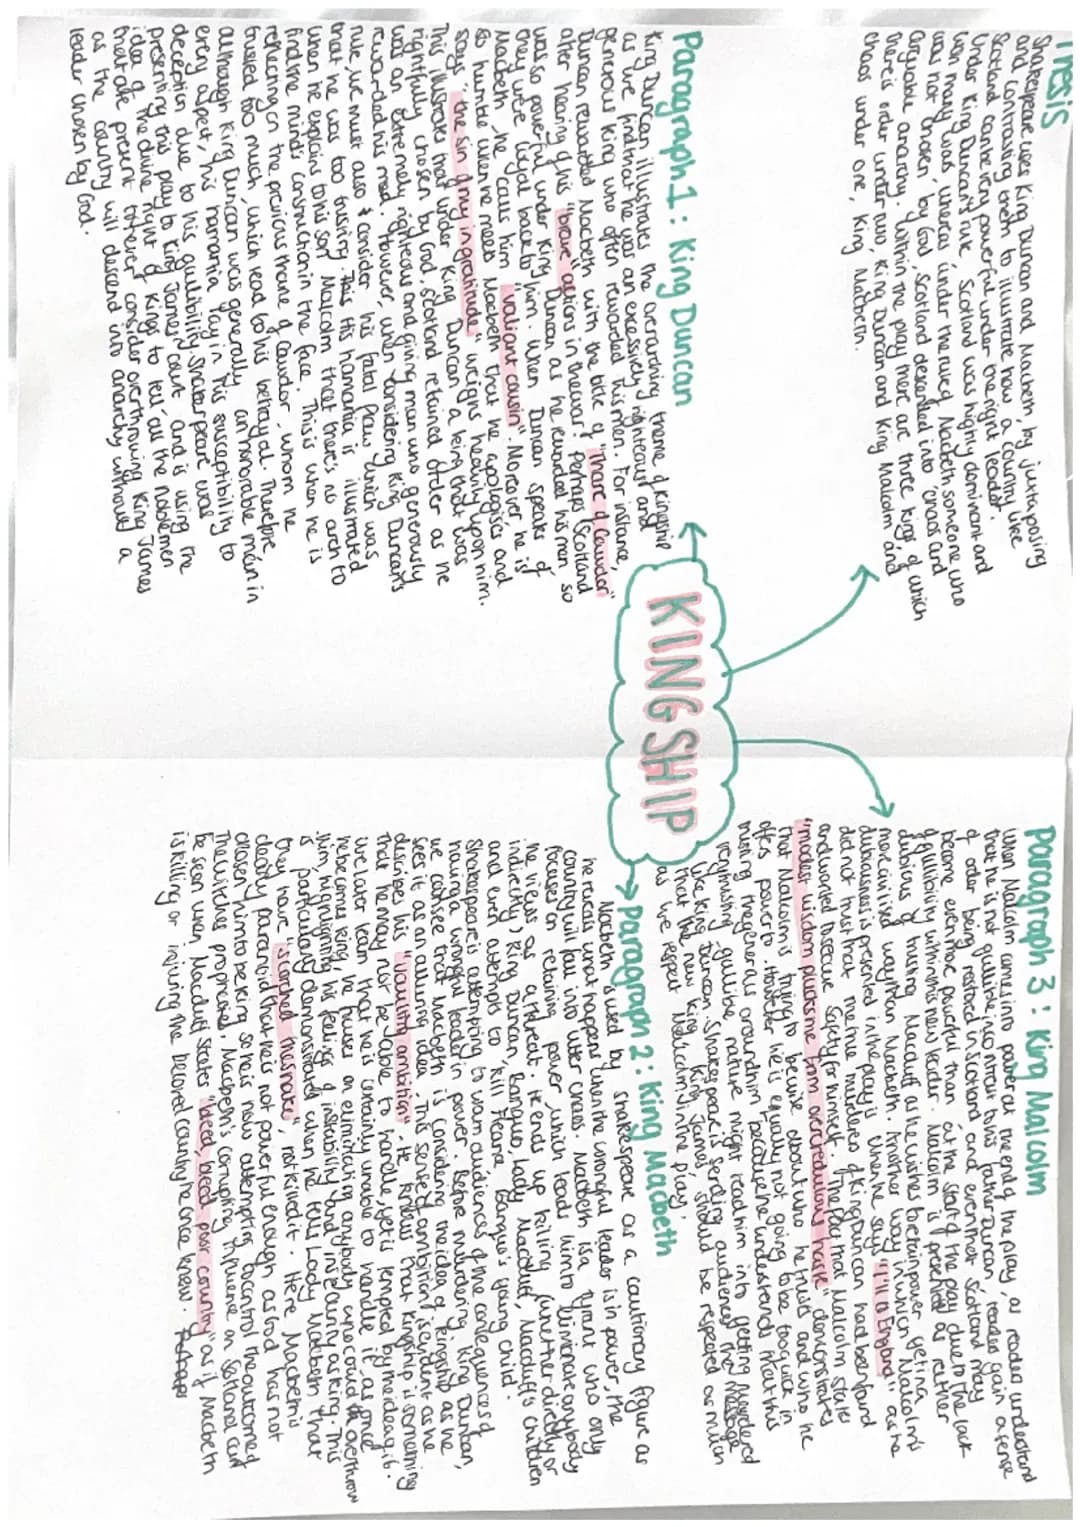 Thesis
Shakespeare uses King Duncan and Macbeth, by juxtaposing
and contrasting them to illustrate how a country like
Scotland can be very powerful under the right leader.
Under King Duncan's rule, Scotland was highly dominant and
won many wars whereas under the rule of Macbeth someone who
was not chosen by God, Scotland descended into chaos and
arguable anarchy. Within the play there are three kings of which
there is order under two, King Duncan and King Malcolm and
chaos under one, King Macbeth.
KINGSHIP
Paragraph 1: King Duncan
King Duncan illustrates the overarching theme of kingship
as we find that he was an excessively righteous and
generous king who often rewarded his men. For instance,
Duncan rewarded Macbeth with the title of "Thane of Cawdor"
after hearing of his "brave" actions in the war. Perhaps Scotland
was so powerful under King Duncan as he rewarded his men so
they were loyal back to him. When Duncan speaks of
Macbeth, he calls him "valiant cousin". Moreover, he is
so humble when he meets Macbeth that he apologises and
says "the sin of my ingratitude" weighs heavily upon him.
This illustrates that under King Duncan a king that was
rightfully chosen by God, Scotland retained order as he
was an extremely righteous and giving man who generously
rewarded his men. However, when considering King Duncan's
rule, we must also consider his fatal flaw which was
that he was too trusting. This His hamartia is illustrated
when he explains to his son Malcolm that there's no art to
find the mind's construction in the face. This is when he is
reflecting on the previous thane of Cawdor, whom he
trusted too much, which lead to his betrayal. Therefore,
although King Duncan was generally an honorable man in
every aspect, his hamartia lay in his susceptibility to
deception due to his gullibility. Shakespeare was
presenting this play to King James' court and is using the
idea of 'The divine right of kings' to tell all the noblemen
that are present to never consider overthrowing King James
as the country will descend into anarchy without a
leader chosen by God.
Paragraph 2: King Macbeth
Macbeth is used by Shakespeare as a cautionary figure as
he reveals what happens when the wrongful leader is in power, the
country will fall into utter chaos. Macbeth is a tyrant who only
focuses on retaining power, which leads him to eliminate anybody
he views as a threat. He ends up killing (whether directly or
indirectly) King Duncan, Banquo, Lady Macduff, Macduff's children
and even attempts to kill Fleance, Banquo's young child.
Shakespeare is attempting to warn audiences of the consequences of
having a wrongful leader in power. Before murdering King Duncan,
we can see that Macbeth is considering the idea of kingship as he
sees it as an alluring idea. This sense of ambition is evident as he
describes his "vaulting ambition". He knows that kingship is something
that he may not be able to handle, yet is tempted by the idea of it.
We later learn that he is certainly unable to handle it as once
he becomes king, he focuses on eliminating anybody who could overthrow
him, highlighting his feelings of instability and insecurity as king. This
is particularly demonstrated when he tells Lady Macbeth that
they have "scorched the snake", not killed it. Here Macbeth is
clearly paranoid that he is not powerful enough as God has not
chosen him to be king so he is now attempting to control the outcome of
the witches prophecies. Macbeth's corrupting influence on Scotland can
be seen when Macduff states "bleed, bleed poor country" as if Macbeth
is killing or injuring the beloved country he once knew.
Paragraph 3: King Malcolm
When Malcolm comes into power at the end of the play, as readers understand
that he is not gullible, in contrast to his father Duncan, readers gain a sense
of order being restored in Scotland and even that Scotland may
become even more powerful than at the start of the play due to the lack
of gullibility within this new leader. Malcolm is presented as rather
dubious of trusting Macduff as he wishes to retain power yet in a
more civilised way than Macbeth. Another way in which Malcolm's
dubiousness is presented in the play is when he says "I'll to England" as he
did not trust that the true murderers of King Duncan had been found
and wanted to secure safety for himself. The fact that Malcolm states
"modest wisdom plucks me from overcredulous haste" demonstrates
that Malcolm is trying to be wise about who he trusts and who he
offers power to. However he is equally not going to be too quick in
trusting the generous around him because he understands that this
very trusting, gullible nature might lead him into getting murdered
like King Duncan. Shakespeare is sending audiences the message
that the new king, King James, should be respected as much
as we respect Malcolm in the play.